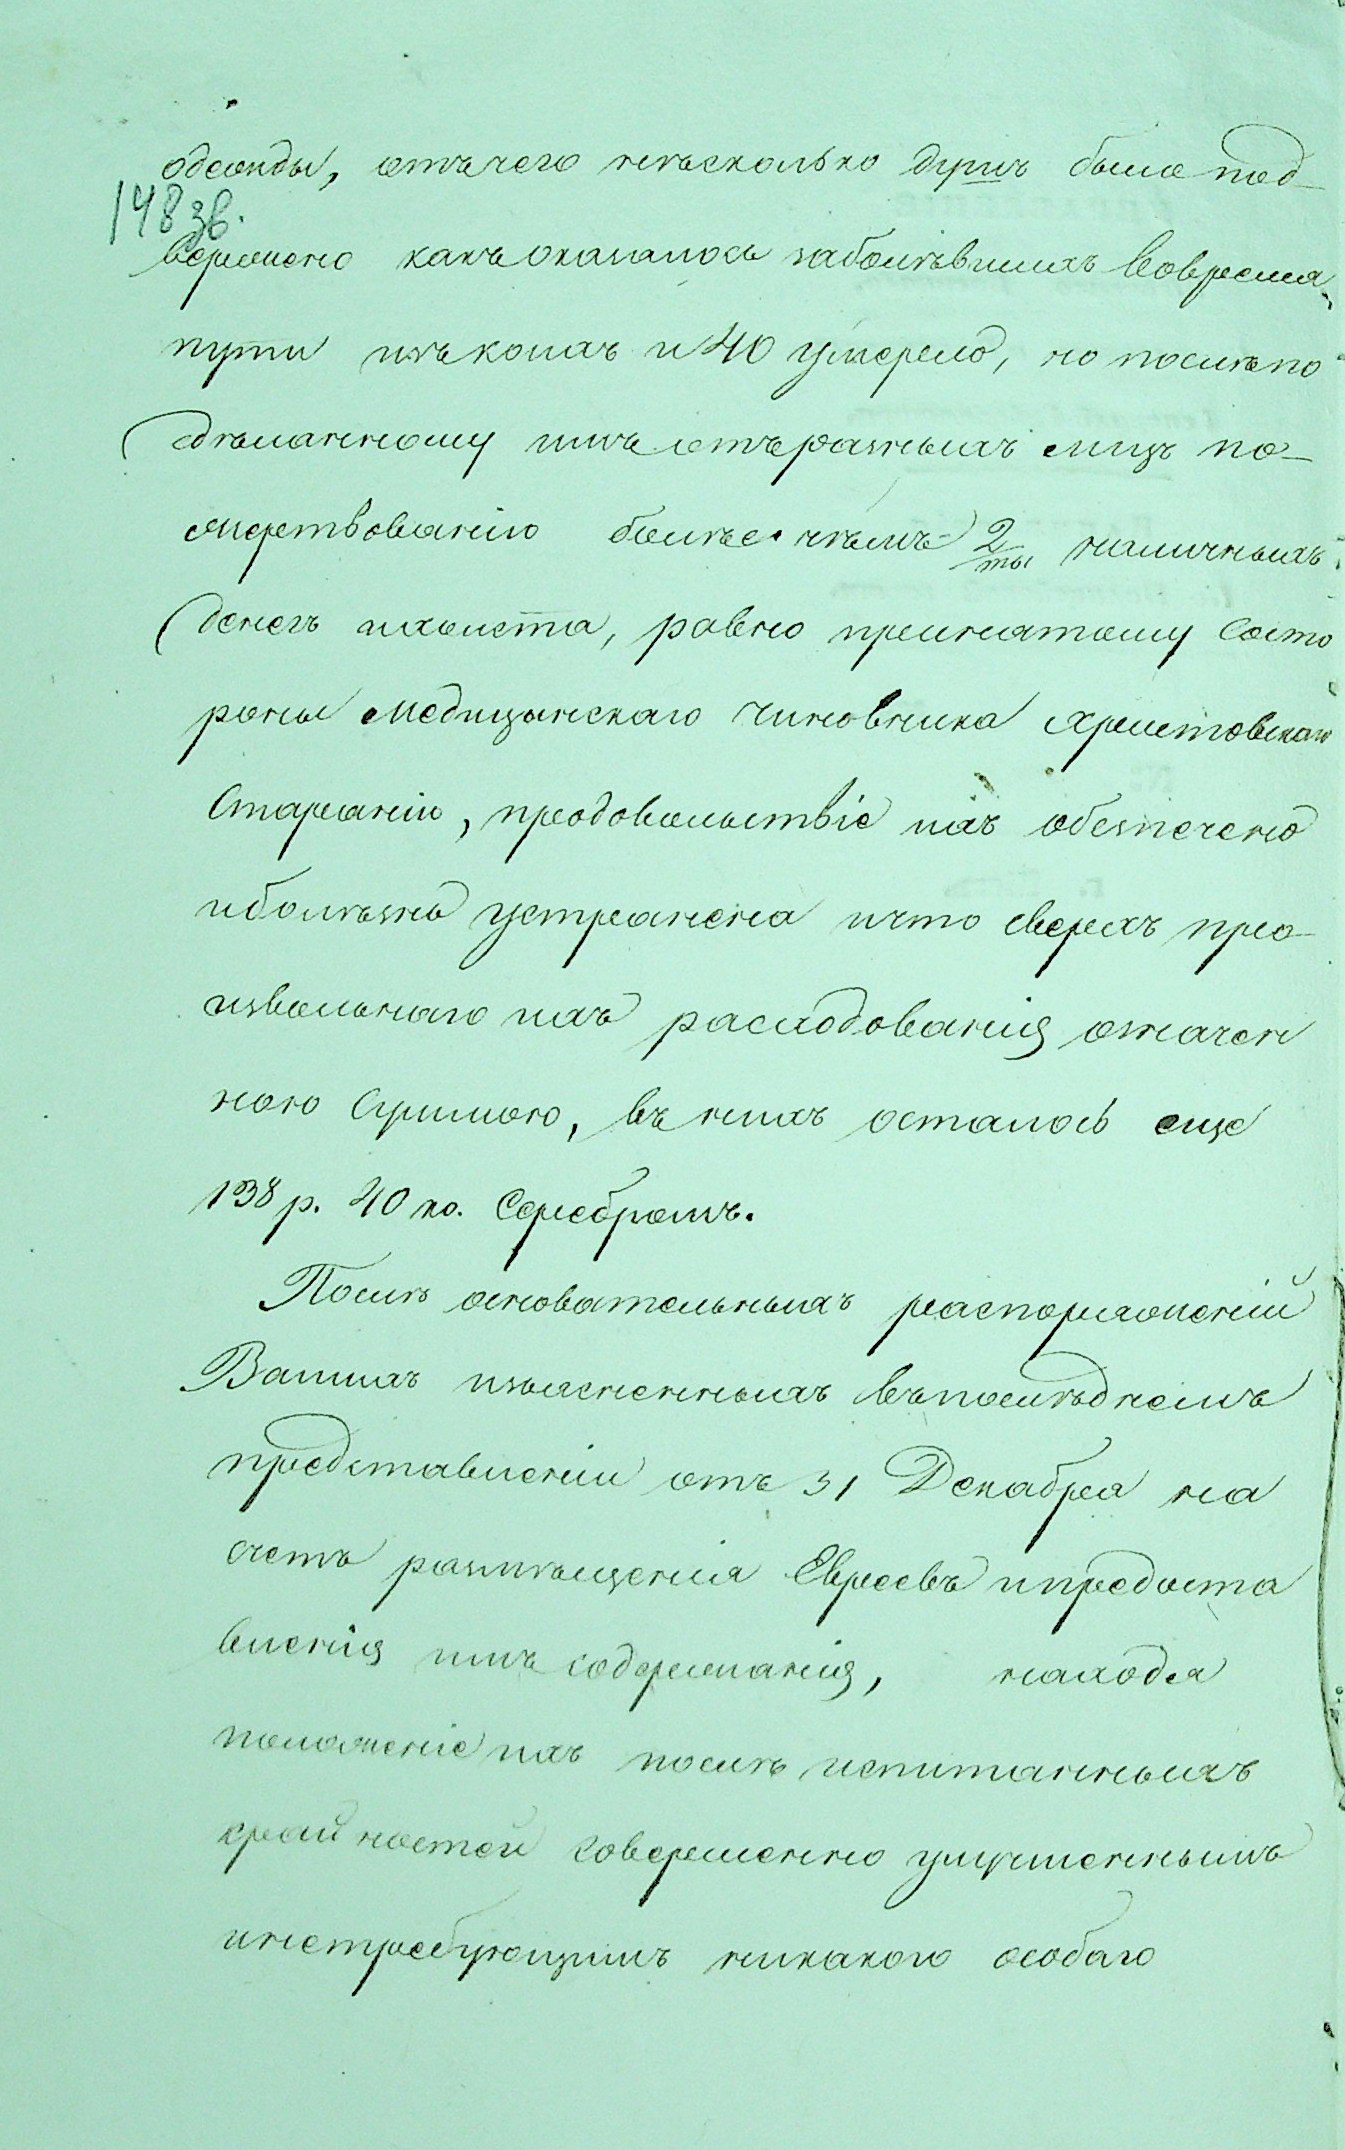 одежды, отъ чего нѣсколько душъ было под-
148 зв.
вержено какъ оказалось заболѣвшихъ вовремя
пути изъ коихъ и 40 умерло, но послѣ по
сдѣланному имъ отъ разныхъ лицъ по-
жертвованію болѣе чѣмъ 2/ты наличныхъ
денегъ и холста, равно принятому Состо
роны Медицынскаго Чиновника Христовскаго
Старанію, продовольствіе ихъ обезпечено
и болѣзнь устранена и что сверхъ про-
извольнаго ихъ расходованія означен
ною Суммою, въ нихъ осталось еще
138 р. 40 ко. Серебромъ.
Послѣ основательныхъ распоряженій
Вашихъ изъясненныхъ въ послѣднемъ
представленіи отъ 31 Декабря на
счетъ размѣщенія Евреевъ и предоста
вленія имъ содержанія, находя
положеніе ихъ послѣ испитанныхъ
крайностей совершенно улучшеннымъ
и нетребующимъ никакого особаго